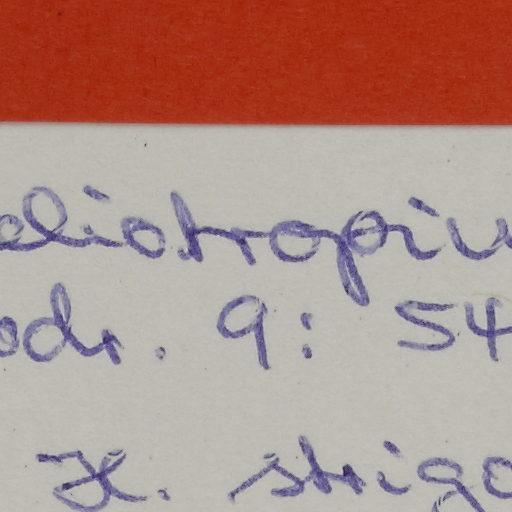 eliotropiu
odr. 9: 54
H. strigo